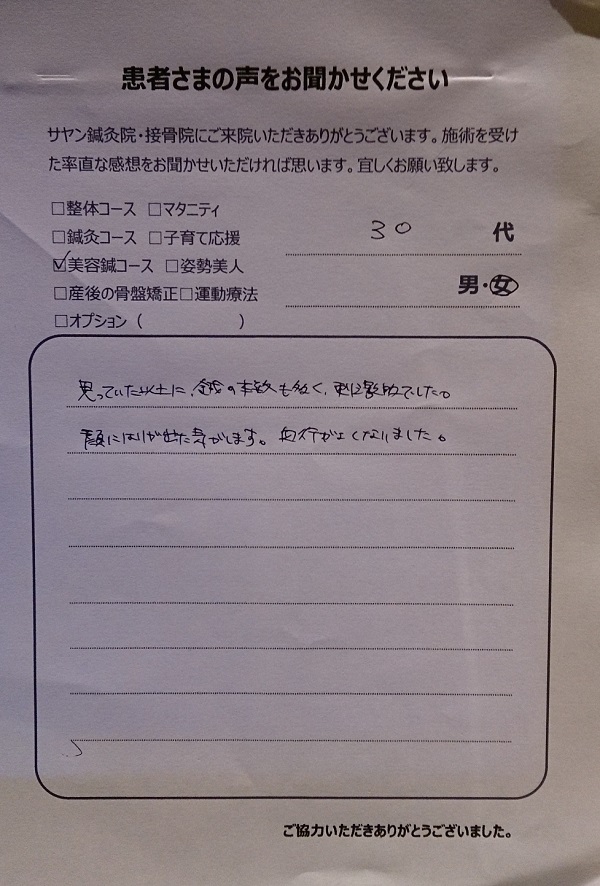 患者さまの声をお聞かせください
サヤン鍼灸院・接骨院にご来院いただきありがとうございます。施術を受け
た率直な感想をお聞かせいただければ思います。宜しくお願い致します。
□整体コース □マタニティ
□鍼灸コース □子育て応援
☑美容鍼コース □姿勢美人
□産後の骨盤矯正□運動療法
□オプション（ ）
30 代
男・女
思っていた以上に、鍼の本数も多く、刺激的でした。
顔にはりが出た気がします。血行がよくなりました。
ご協力いただきありがとうございました。